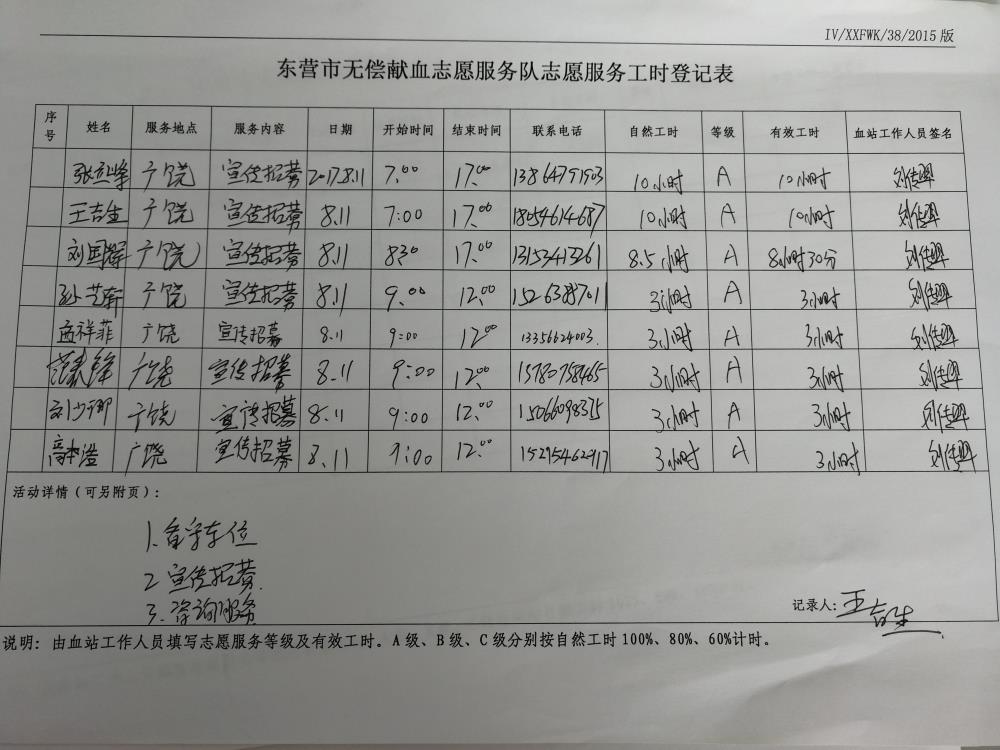 IV/XXFWK/38/2015版
东营市无偿献血志愿服务队志愿服务工时登记表
序号 姓名 服务地点 服务内容 日期 开始时间 结束时间 联系电话 自然工时 等级 有效工时 血站工作人员签名
广饶 宣传招募 2017.8.11 7:00 17:00 13864791903 10小时 A 10小时
王吉生 广饶 宣传招募 8.11 7:00 17:00 18054614687 10小时 A 10小时
刘国辉 广饶 宣传招募 8.11 8:30 17:00 13153413261 8.5小时 A 8小时30分
孙艺新 广饶 宣传招募 8.11 9:00 12:00 3小时 A 3小时
祥菲 广饶 宣传招募 8.11 9:00 12:00 13356624003. 3小时 A 3小时
广饶 宣传招募 8.11 9:00 12:00 15780758465 3小时 A 3小时
刘少卿 广饶 宣传招募 8.11 9:00 12:00 15066098375 3小时 A 3小时
高 广饶 宣传招募 8.11 9:00 12:00 3小时 A 3小时
活动详情（可另附页）：
1.看守车位
2 宣传招募.
3.咨询服务
记录人：王吉生
说明：由血站工作人员填写志愿服务等级及有效工时。A级、B级、C级分别按自然工时100%、80%、60%计时。